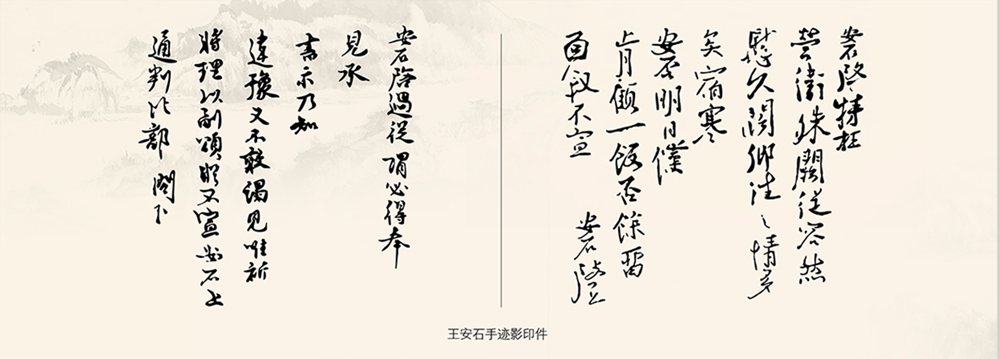 安石啓特枉
營衛殊闕從容然
慰久闊鄉往之情多
矣宿寒
安否明日僕
肯顧一飯否餘留
面敘不宣 安石啓
安石啓過從謂必得奉
見承
書示乃知
違豫又不敢謁見唯祈
將理以副頌咏不宣安石上
通判比部 閤下
王安石手迹影印件